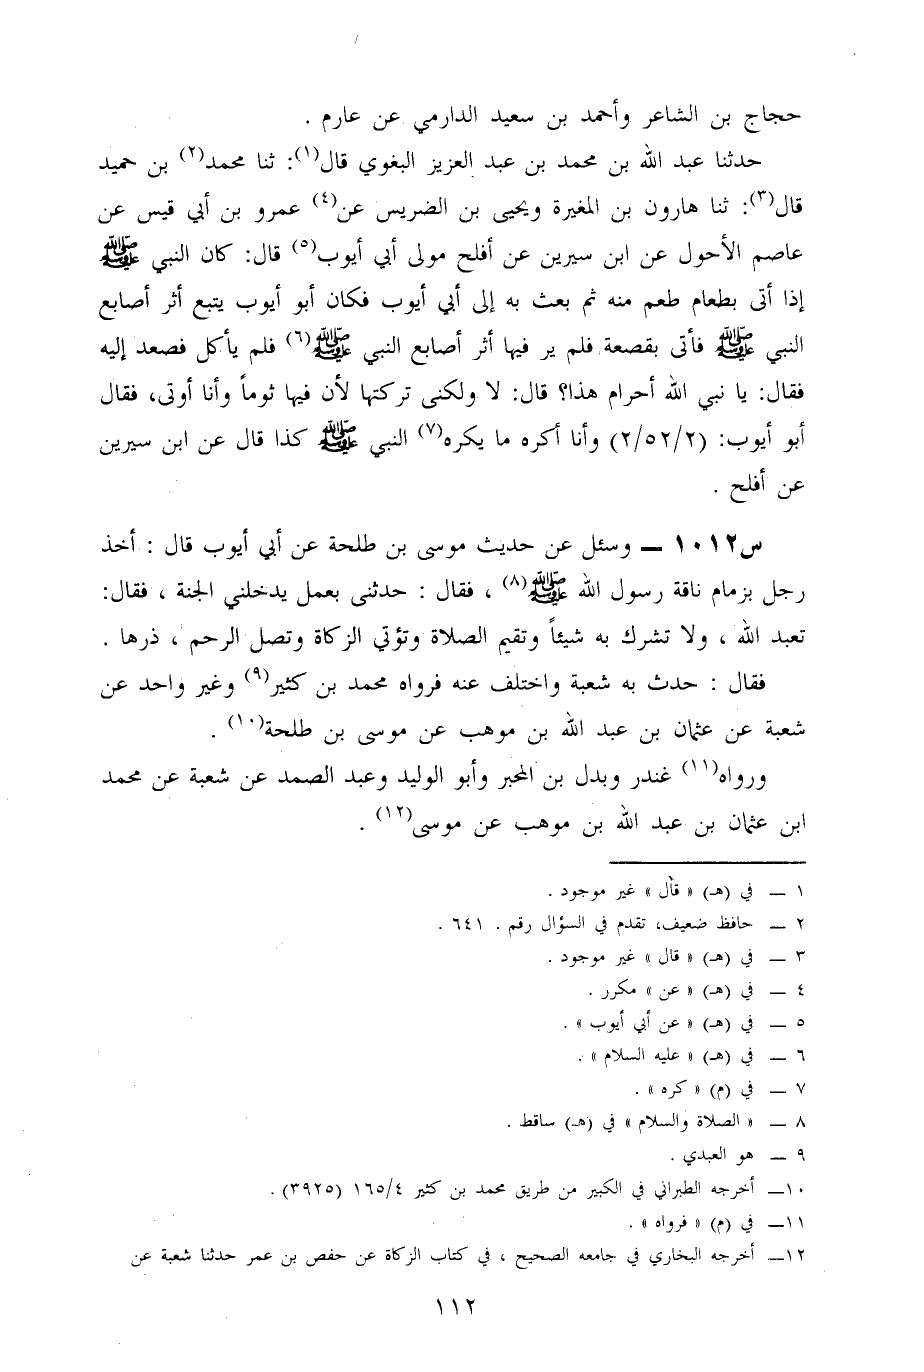 حجاج بن الشاعر وأحمد بن سعيد الدارمي عن عارم .
حدثنا عبد الله بن محمد بن عبد العزيز البغوي قال(١): ثنا محمد(٢) بن حميد
قال(٣): ثنا هارون بن المغيرة ويحيى بن الضريس عن(٤) عمرو بن أبي قيس عن
عاصم الأحول عن ابن سيرين عن أفلح مولى أبي أيوب(٥) قال: كان النبي ﷺ
إذا أتى بطعام طعم منه ثم بعث به إلى أبي أيوب فكان أبو أيوب يتبع أثر أصابع
النبي ﷺ فأتى بقصعة فلم ير فيها أثر أصابع النبي ﷺ(٦) فلم يأكل فصعد إليه
فقال: يا نبي الله أحرام هذا؟ قال: لا ولكنى تركتها لأن فيها ثوماً وأنا أوتى، فقال
أبو أيوب: (٢/٥٢/٢) وأنا أكره ما يكره(٧) النبي ﷺ كذا قال عن ابن سيرين
عن أفلح .
س١٠١٢ ــ وسئل عن حديث موسى بن طلحة عن أبي أيوب قال : أخذ
رجل بزمام ناقة رسول الله ﷺ(٨) ، فقال : حدثنى بعمل يدخلني الجنة ، فقال:
تعبد الله ، ولا تشرك به شيئاً وتقيم الصلاة وتؤتي الزكاة وتصل الرحم ، ذرها .
فقال : حدث به شعبة واختلف عنه فرواه محمد بن كثير(٩) وغير واحد عن
شعبة عن عثمان بن عبد الله بن موهب عن موسى بن طلحة(١٠) .
ورواه(١١) غندر وبدل بن المحبر وأبو الوليد وعبد الصمد عن شعبة عن محمد
ابن عثمان بن عبد الله بن موهب عن موسى(١٢) .
١ ــ في (هـ) « قال » غير موجود .
٢ ــ حافظ ضعيف، تقدم في السؤال رقم . ٦٤١ .
٣ ــ في (هـ) « قال » غير موجود .
٤ ــ في (هـ) « عن » مكرر .
٥ ــ في (هـ) « عن أبي أيوب » .
٦ ــ في (هـ) « عليه السلام » .
٧ ــ في (م) « كره » .
٨ ــ « الصلاة والسلام » في (هـ) ساقط .
٩ ــ هو العبدي .
١٠ــ أخرجه الطبراني في الكبير من طريق محمد بن كثير ١٦٥/٤ (٣٩٢٥) .
١١ــ في (م) « فرواه » .
١٢ــ أخرجه البخاري في جامعه الصحيح ، في كتاب الزكاة عن حفص بن عمر حدثنا شعبة عن
١١٢